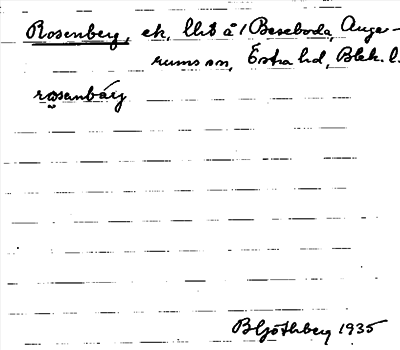 Rosenberg, ek, lht å 1 Beseboda, Auge-
rums sn, Östra hd, Blek. l.
rosanbárj
B Göthberg 1935